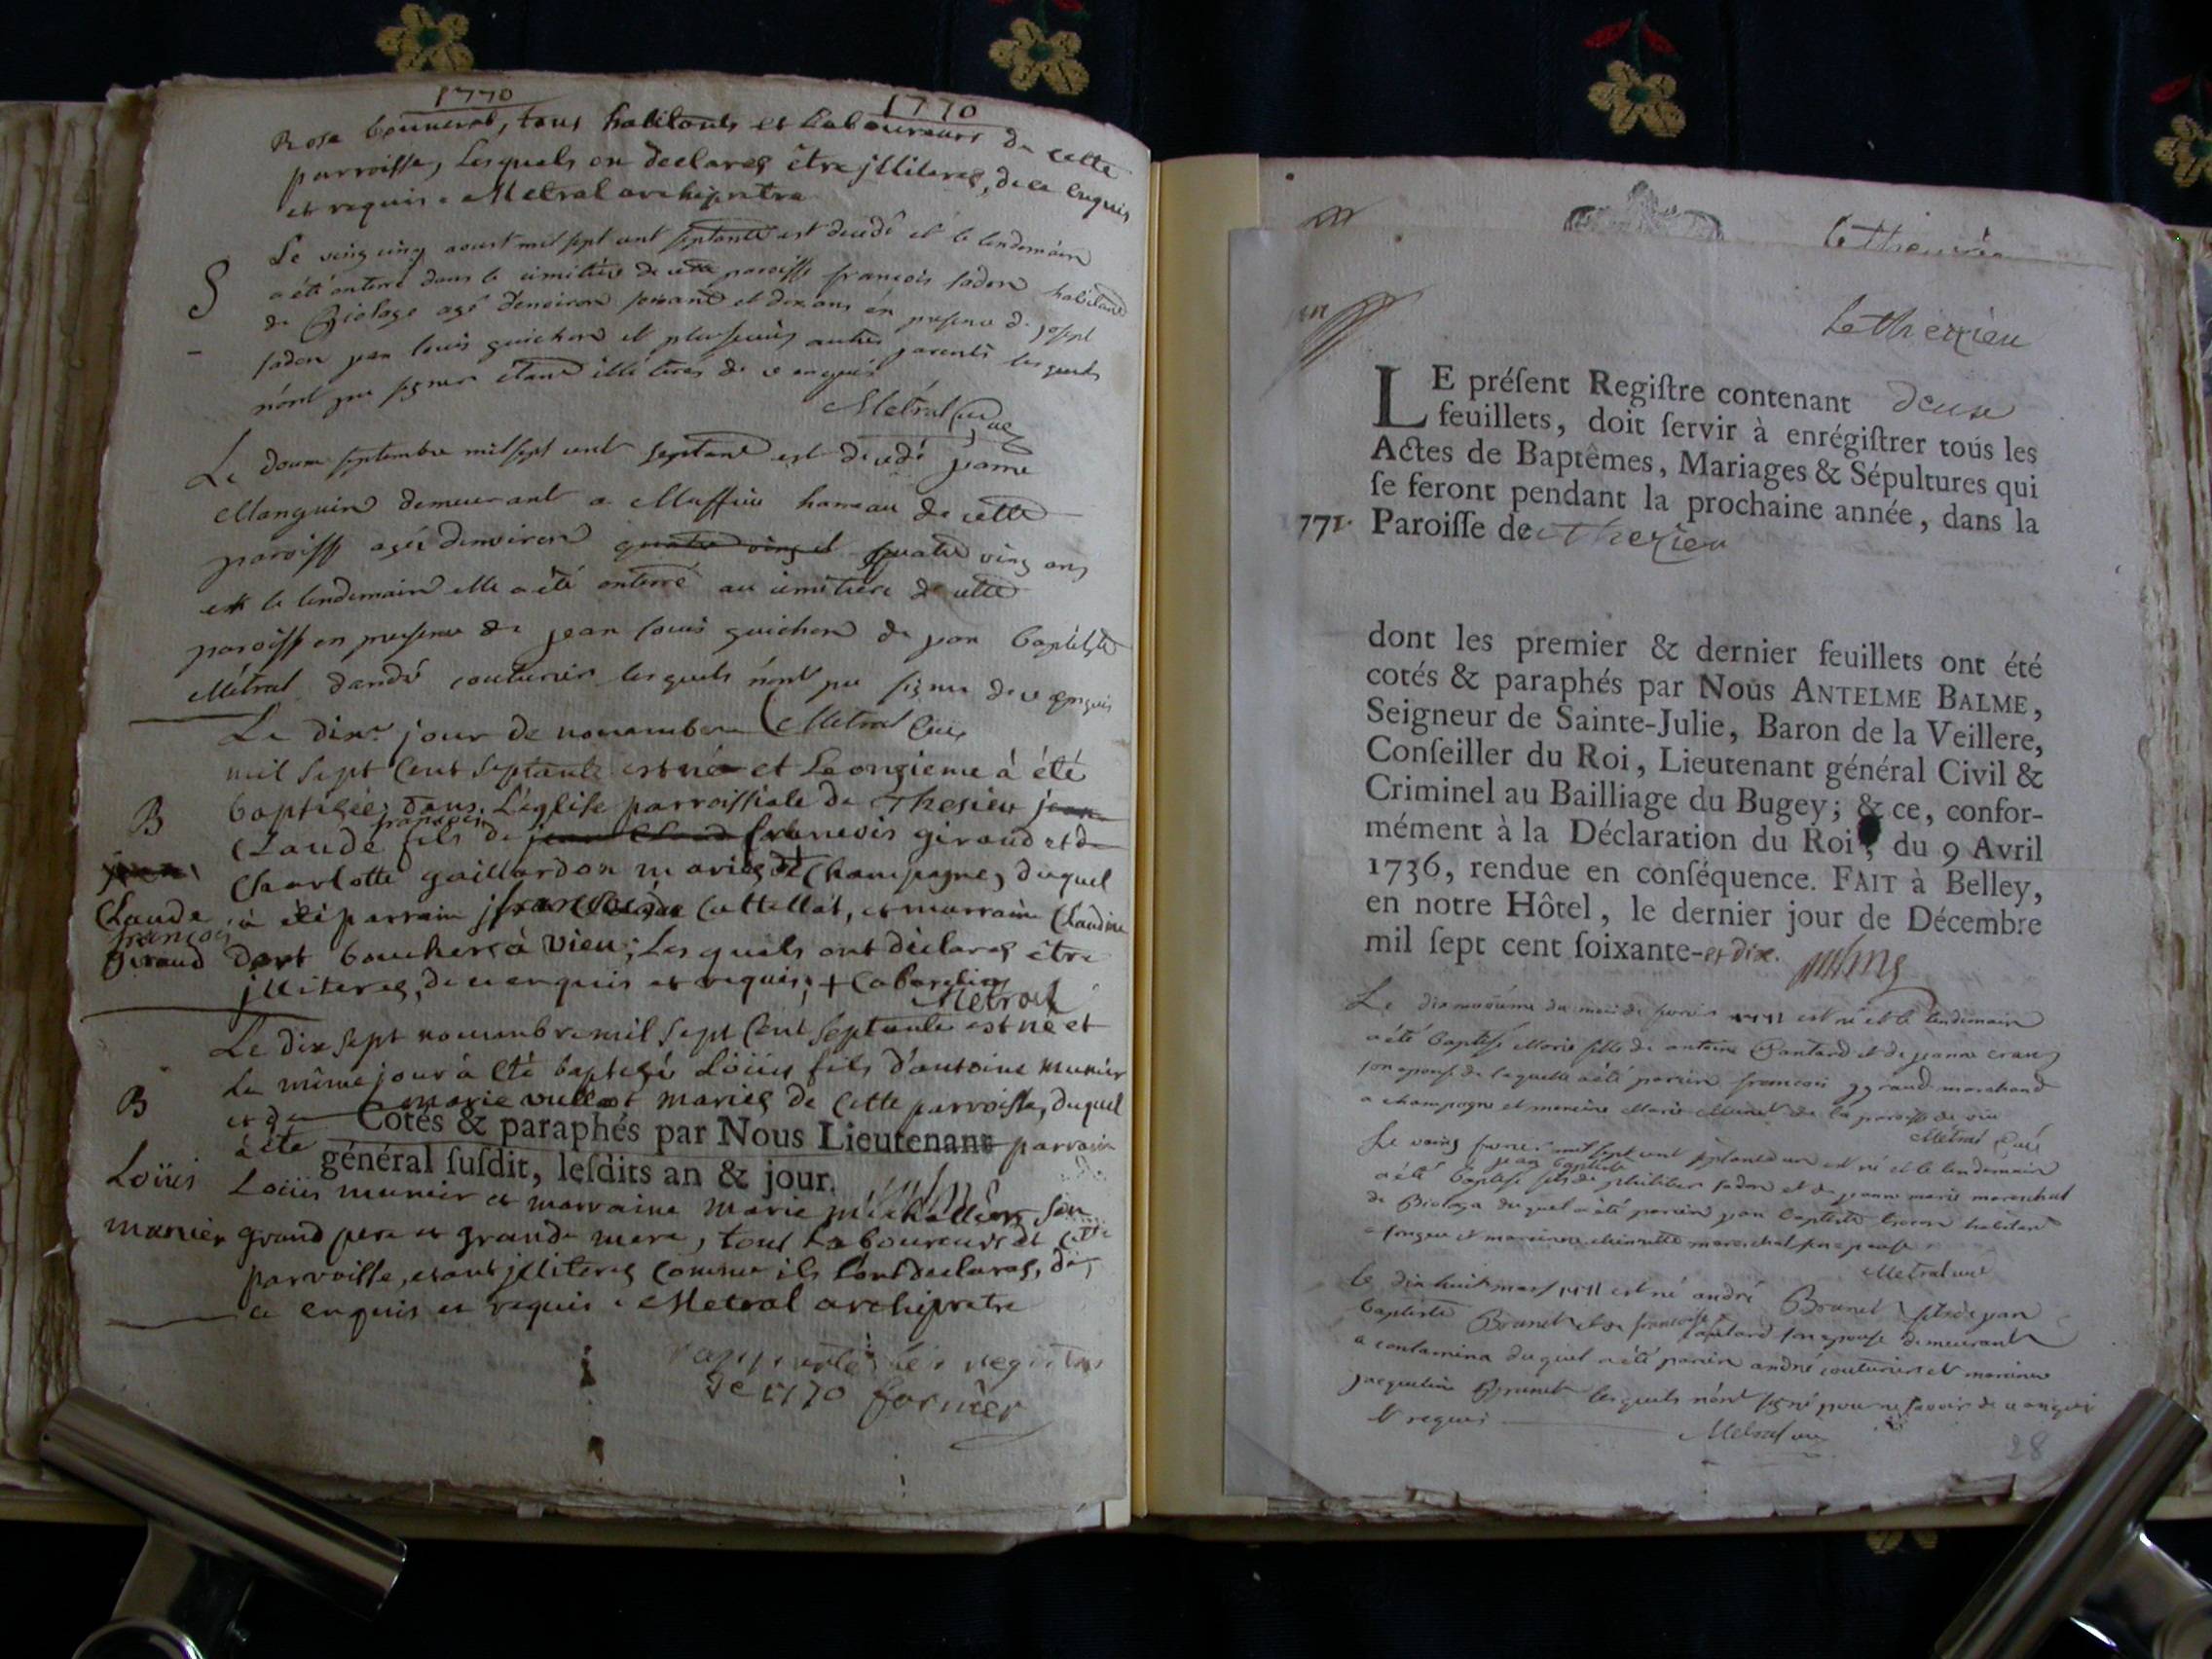 1770 1770
Rosa bonnerot, tous habitants et Laboureurs de cette
parroisse, Lesquels on declares être jlliteres, de ce enquis
et requis. Metral archipretre
Le ving cinq aoust mil sept cent septante est décédé et le lendemain
S a été enterré dans le cimitière de cette paroisse françois sadon habitant
de Biolage agé d'environ soixante et dix ans en presence de joseph
sadon jean louis guichon et plusieurs autres parents lesquels
n'ont pu signer étant illiteres de ce enquis
Metral Curé
Le septembre mil sept cent septante est décédé
Manguin demeurant a Muffieu hameau de cette
paroisse agée d'environ quatre ving et quatre ving ans
et le lendemain elle a été enterré au cimitière de cette
paroisse en presence de jean louis guichon de jean baptiste
Métral d'andré couturier lesquels n'ont pu signer de ce enquis
Le dixe jour de nouembre Metral Curé
mil sept Cent septante est né et Le onzieme à été
B baptisée dans L'église parroissiale de Thesieu jean
Claude françois fils de jean Claude francois giraud et de
jean Charlotte gaillardon mariés de Champagne, duquel
Claude à été parrain Cattellat, et marraine Claudine
françois
giraud dort boucher à vieu; Les quels ont déclarés être
jlliteres, de ce enquis et requis; +
Metral
Le dix sept nouembre mil sept Cent Septante est né et
Le même jour à été baptisé Loüis fils d'antoine munier
B et de marie vullot mariés de Cette parroisse, duquel
Cotés & paraphés par Nous Lieutenant
à été parrain
général ſuſdit, leſdits an & jour.
Loüis Loüis munier et marraine marie son
munier grand pere et grande mere, tous Laboureurs de cette
parroisse, étant jlliteres Comme ils L'ont declarés, de
ce enquis et requis. Metral archipretre
les registres
de 1770
Letherieu
LE préſent Regiſtre contenant deux
feuillets, doit ſervir à enrégiſtrer tous les
Actes de Baptêmes, Mariages & Sépultures qui
ſe feront pendant la prochaine année, dans la
1771. Paroiſſe de
dont les premier & dernier feuillets ont été
cotés & paraphés par Nous ANTELME BALME,
Seigneur de Sainte-Julie, Baron de la Veillere,
Conſeiller du Roi, Lieutenant général Civil &
Criminel au Bailliage du Bugey; & ce, confor-
mément à la Déclaration du Roi, du 9 Avril
1736, rendue en conſéquence. FAIT à Belley,
en notre Hôtel, le dernier jour de Décembre
mil ſept cent ſoixante-et dix.
Le du mois de 1771 est né et le lendemain
a été baptisé Marie fille de antoine et de jeanne
son epouse de laquelle a été parrain francois marchand
a champagne et mareine Marie de la paroisse de vieu
Metral Curé
Le ving mil sept cent septante un est né et le lendemain
a été baptisé jean baptiste fils de philibert sadon et de jeanne marie mareschal
de Biolage duquel a été parrain jean baptiste habitant
a songieu et mareine mareschal
Metral curé
le dix huit mars 1771 est né andré Brunet fils de jean
baptiste Brunet et de francoise son epouse demeurant
a contamina duquel a été parrain andré couturier et mareine
jacqueline Brunet lesquels n'ont signé pour ne savoir de ce enquis
et requis
Metral curé
28